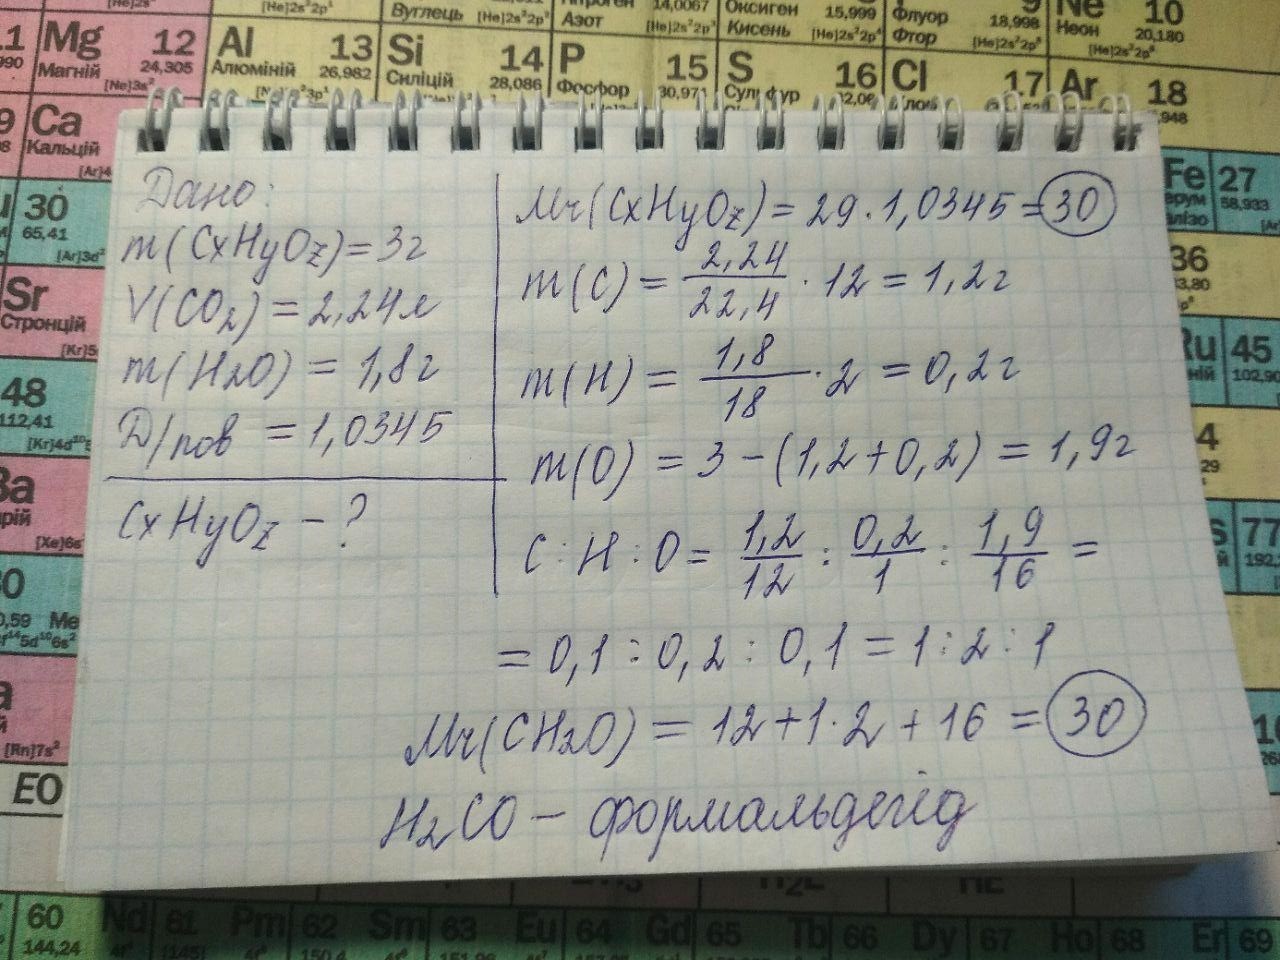 [He]2s²
[He]2s²2p¹
Вуглець [He]2s²2p²
14,0067
Азот
Оксиген 15,999
Кисень [He]2s²2p⁴
Флуор 18,998
Фтор [He]2s²2p⁵
Ne 10
Неон 20,180
[He]2s²2p⁶
Mg 12
Магній 24,305
[Ne]3s²
Al 13
Алюміній 26,982
Si 14
Силіцій 28,086
P 15
Фосфор
S 16
Cl 17
Ar 18
Ca
Кальцій
30
65,41
[Ar]3d
Sr
Стронцій
[Kr]5
48
112,41
[Xe]6s
[Rn]7s²
EO
Fe 27
58,933
36
Ru 45
102,90
77
Дано:
m(CxHyOz)=3г
V(CO₂)=2,24л
m(H₂O) = 1,8г
D/пов = 1,0345
CxHyOz – ?
Mr(CxHyOz)= 29·1,0345=30
m(C) = 2,24/22,4 · 12 = 1,2г
m(H) = 1,8/18 · 2 = 0,2г
m(O) = 3 – (1,2+0,2) = 1,9г
C : H : O = 1,2/12 : 0,2/1 : 1,9/16 =
= 0,1 : 0,2 : 0,1 = 1 : 2 : 1
Mr(CH₂O) = 12+1·2 + 16 = 30
H₂CO – формальдегід
60 Nd 61 Pm 62 Sm 63 Eu 64 Gd 65 Tb 66 Dy 67 Ho 68 Er 69
144,24